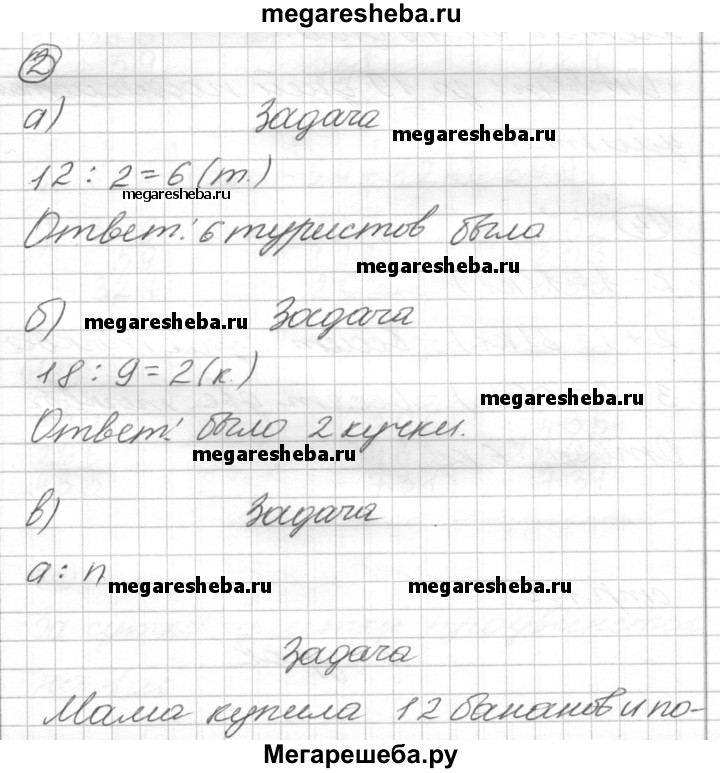 megaresheba.ru
2
а) Задача
megaresheba.ru
12 : 2 = 6 (т.)
megaresheba.ru
Ответ: 6 туристов была
megaresheba.ru
б) megaresheba.ru Задача
18 : 9 = 2 (к.)
megaresheba.ru
Ответ: было 2 кучки.
megaresheba.ru
в) Задача
а : n
megaresheba.ru megaresheba.ru
Задача
Мама купила 12 бананов и по-
Мегарешеба.ру